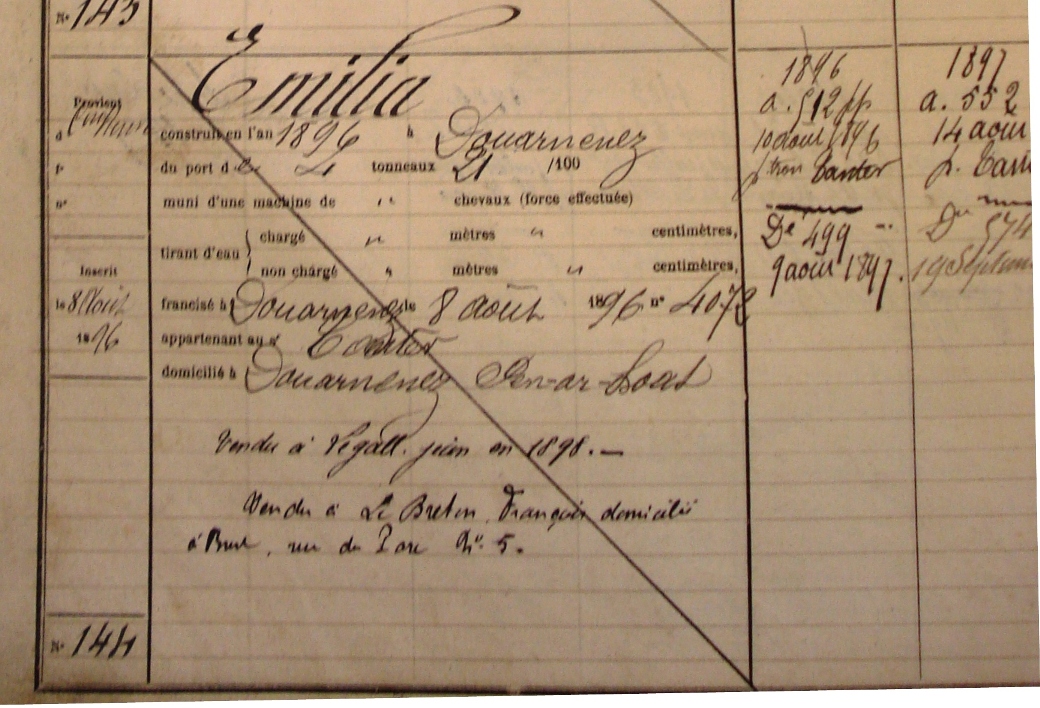 N° 143
Emilia
Provient
d
F°
n°
Inscrit
le 8 Août
1896
construit en l'an 1896 à Douarnenez
du port de 4 tonneaux 21 /100
muni d'une machine de " chevaux (force effectuée)
tirant d'eau
chargé " mètres " centimètres,
non chargé " mètres " centimètres,
francisé à Douarnenez le 8 août 1896 n° 4072
appartenant au sr
domicilié à Douarnenez Pen-ar-Hoat
Vendu à Légall. en 1898. —
Vendu à Le Breton François domicilié
à Brest, rue du Parc N° 5.
N° 144
1896
a. 512 pp
10 août 1896
De 499
9 août 1897.
1897
a. 552
14 août
p.
De 574
19 Septem